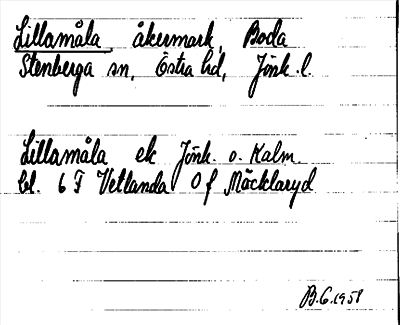 Lillamåla, åkermark, Boda
Stenberga sn, Östra hd, Jönk. l.
Lillamåla ek Jönk. o. Kalm.
bl. 6 F Vetlanda 0 f Mäcklaryd
B.G. 1958